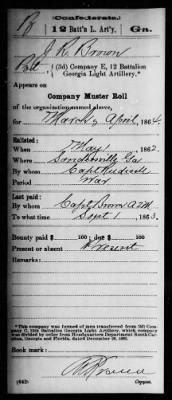 B
(Confederate.)
12 Batt'n L. Art'y. Ga.
J. R. Brown
Pvt., (2d) Company E, 12 Battalion
Georgia Light Artillery.*
Appears on
Company Muster Roll
of the organization named above,
for March & April, 1864.
Enlisted:
When May 1, 1862.
Where Sandersville Ga
By whom Capt
Period War
Last paid:
By whom Capt Brown AQM
To what time Sept 1, 1863.
Bounty paid $ 100; due $ 100
Present or absent Present
Remarks:
*This company was formed of men transferred from (2d) Company C, 12th Battalion Georgia Light Artillery, which company was divided by order from Headquarters Department South Carolina, Georgia and Florida, dated December 1863.
Book mark:
(642) Copyist.